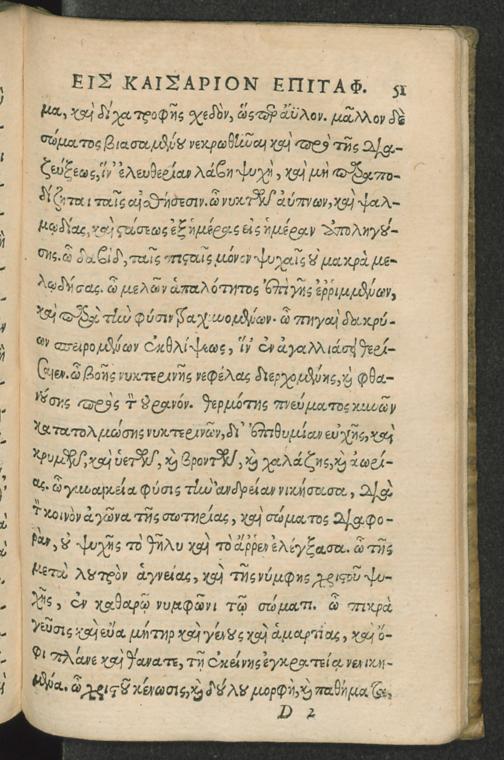 ΕΙΣ ΚΑΙΣΑΡΙΟΝ ΕΠΙΤΑΦ. 51
μα, καὶ δίχα τροφῆς χεδὸν, ὥσπερ ἄϋλον. μᾶλλον δὲ
σώματος βιασαμένου νεκρωθῆναι καὶ πρὸ τῆς δια-
ζεύξεως, ἵν' ἐλευθερίαν λάβῃ ψυχὴ, καὶ μὴ παραπο-
δίζηται ταῖς αἰσθήσεσιν. ὢ νυκτῶν ἀύπνων, καὶ ψαλ-
μῳδίας, καὶ στάσεως ἐξ ἡμέρας εἰς ἡμέραν ἀποληγού-
σης. ὢ δαβὶδ, ταῖς πισταῖς μόνον ψυχαῖς οὐ μακρὰ με-
λῳδήσας. ὢ μελῶν ἁπαλότητος ἐπὶ γῆς ἐρριμμένων,
καὶ παρὰ τὴν φύσιν τραχυνομένων. ὢ πηγαὶ δακρύ-
ων σπειρομένων ἐν θλίψεως, ἵν' ἐν ἀγαλλιάσει θερί-
σαιεν. ὢ βοῆς νυκτερινῆς νεφέλας διερχομένης, καὶ φθα-
νούσης πρὸς τ̀ οὐρανόν. θερμότης πνεύματος κυνῶν
κατατολμώσης νυκτερινῶν, δι' ἐπιθυμίαν εὐχῆς, καὶ
κρυμῶν, καὶ ὑετῶν, καὶ βροντῶν, καὶ χαλάζης, καὶ ἀωρί-
ας. ὢ γυναικεία φύσις τὴν ἀνδρείαν νικήσασα, διὰ
τ̀ κοινὸν ἀγῶνα τῆς σωτηρίας, καὶ σώματος διαφο-
ρὰν, οὐ ψυχῆς τὸ θῆλυ καὶ τὸ ἄῤῥεν ἐλέγξασα. ὢ τῆς
μετὰ λουτρὸν ἁγνείας, καὶ τῆς νύμφης χριστοῦ ψυ-
χῆς, ἐν καθαρῷ νυμφῶνι τῷ σώματι. ὢ πικρὰ
γεῦσις καὶ εὔα μήτηρ καὶ γένους καὶ ἁμαρτίας, καὶ ὄ-
φι πλάνε καὶ θάνατε, τῇ ἐκείνης ἐγκρατείᾳ νενικη-
μένα. ὢ χριστοῦ κένωσις, καὶ δούλου μορφὴ, καὶ παθήματα,
D 2